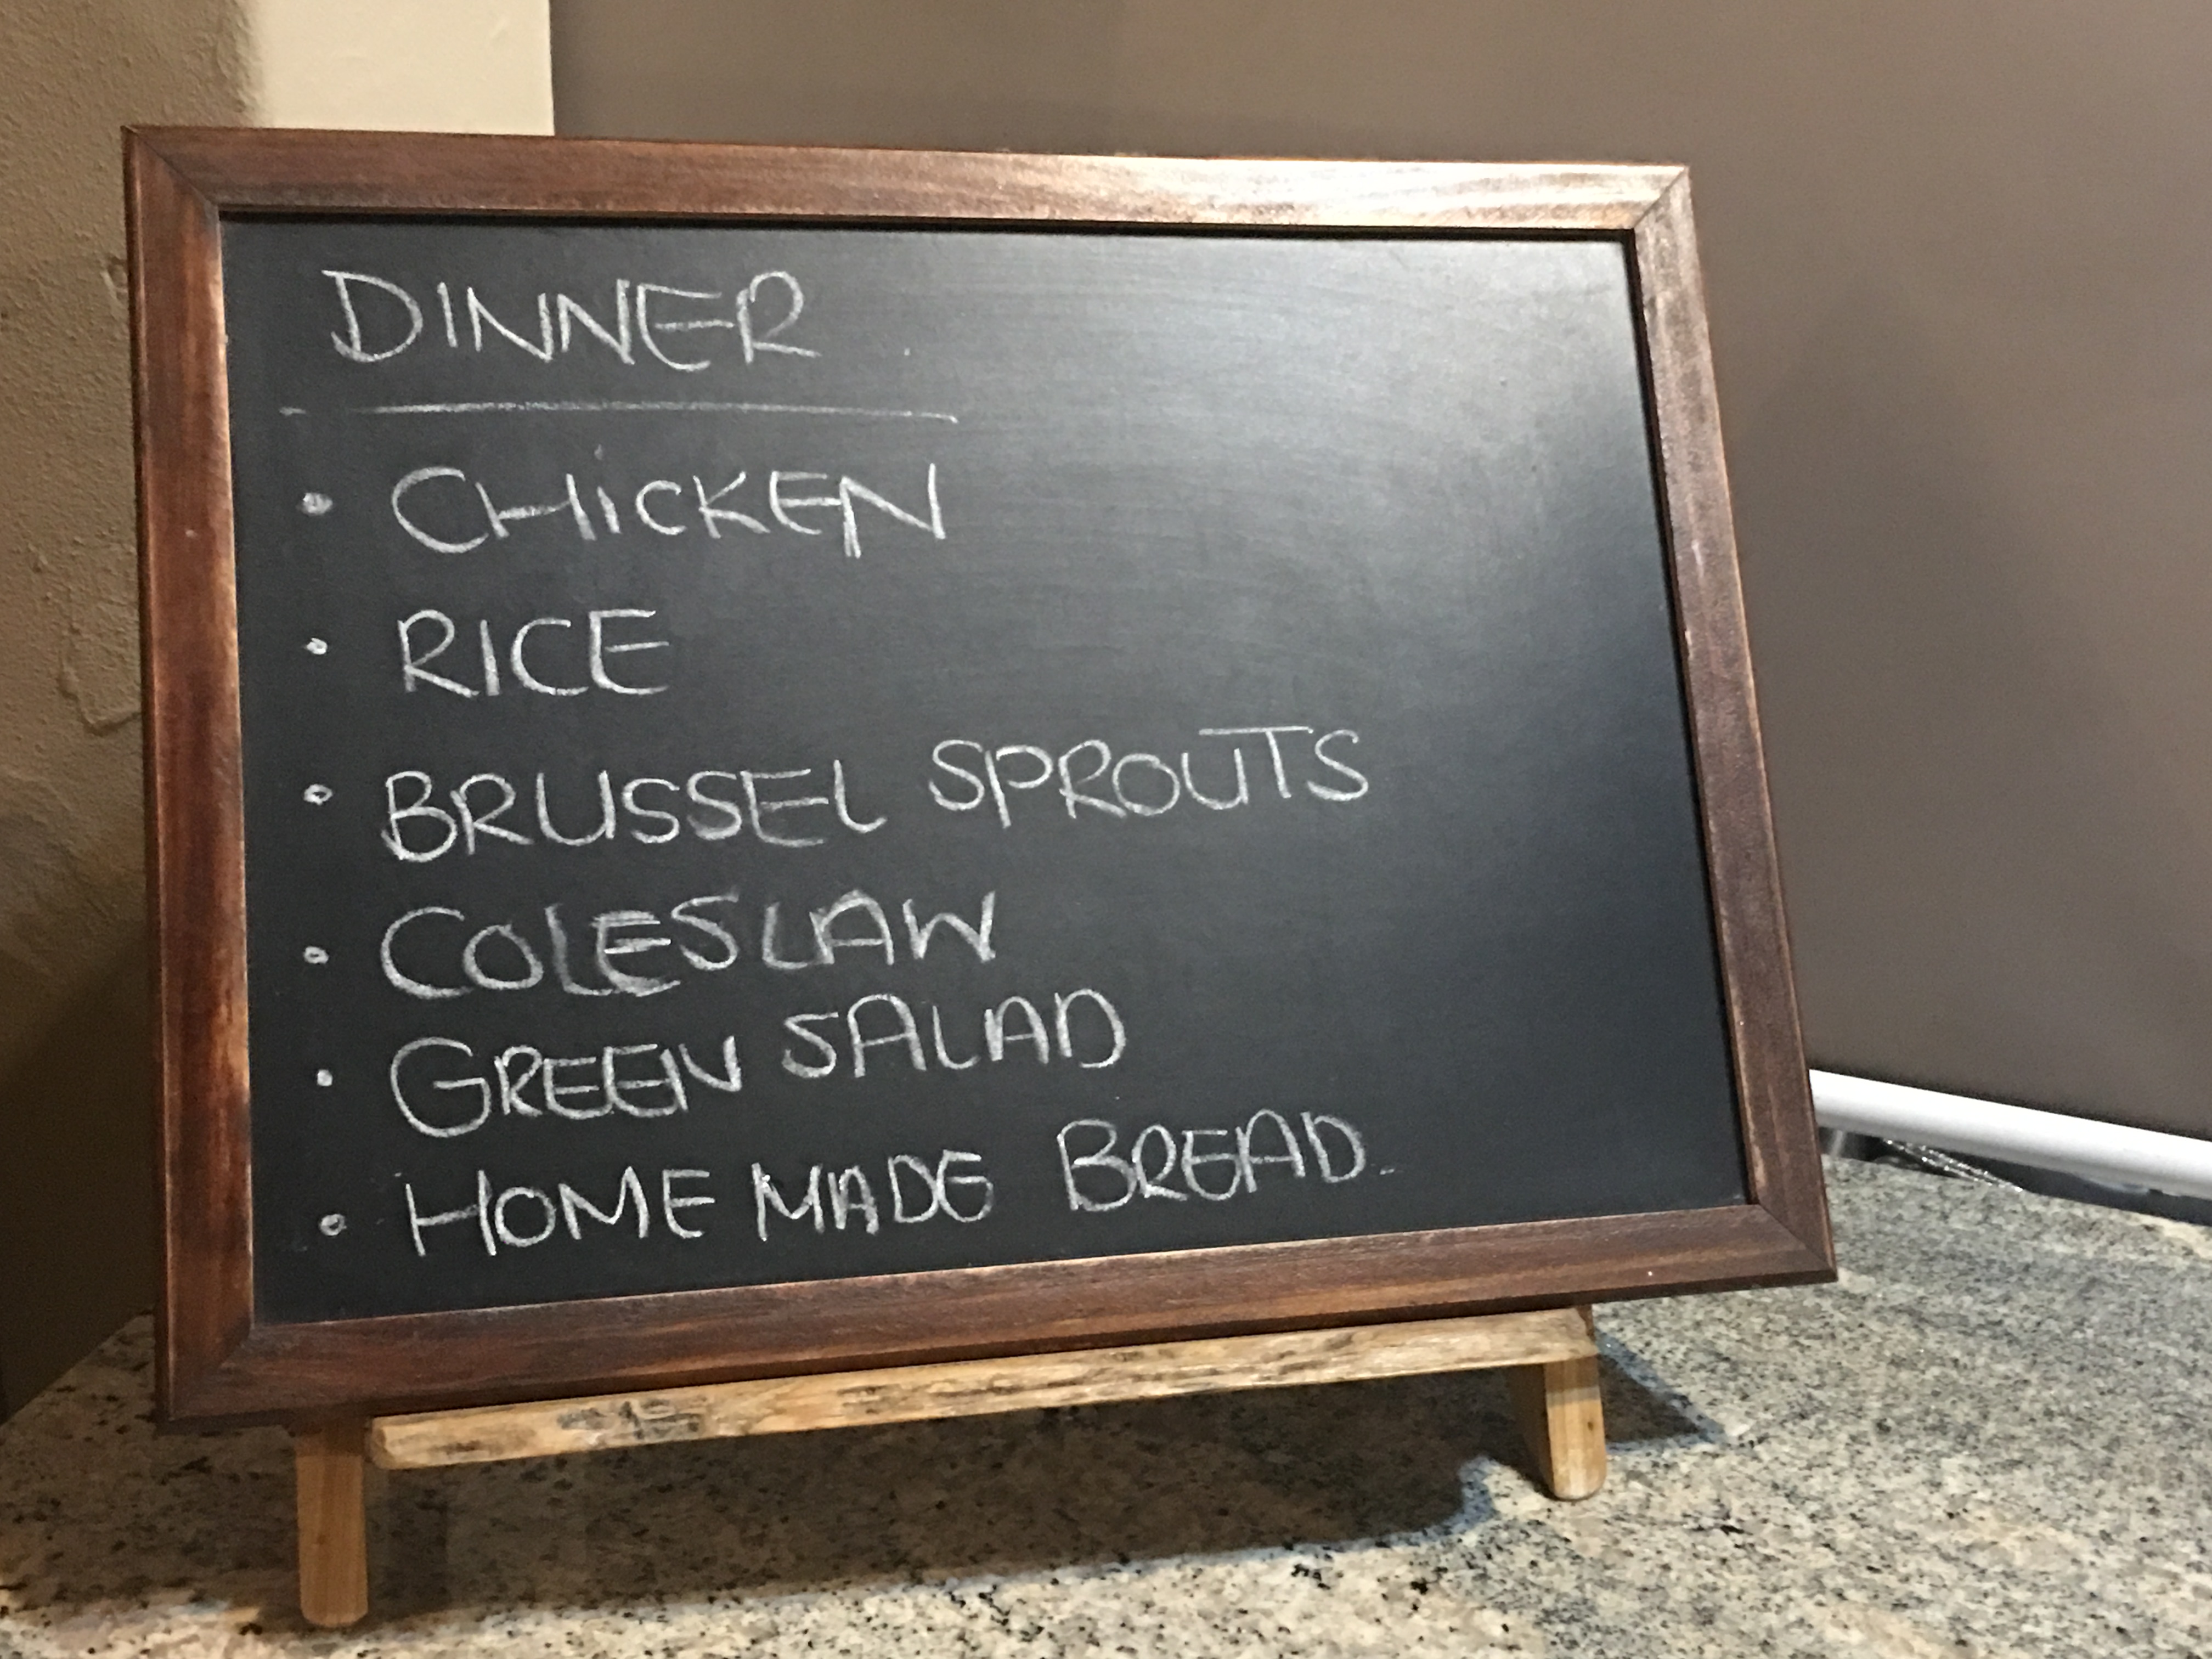 DINNER
• CHiCKEN
• RICE
• BRUSSEL SPROUTS
• COLESLAW
• GREEN SALAD
• HOME MADE BREAD.